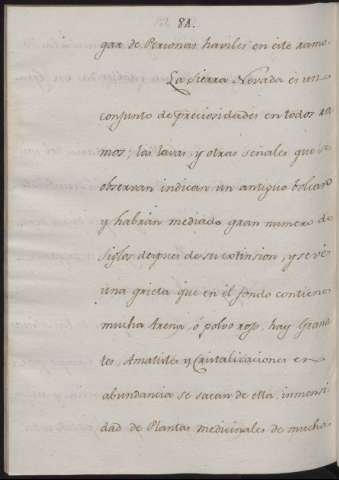 84.
gar de Personas haviles en este ramo
La Sierra Nevada es un
conjunto de preciosidades en todos ra-
mos; las lavas, y otras señales que se
observan indican un antiguo bolcan
y habrian mediado gran numero de
siglos despues de su extinsion, y se ve
una grieta que en el fondo contiene
mucha arena, ó polvo rojo, hay Grana-
tes, Amatistes y Cristalizaciones en
abundancia se sacan de ella, inmensi-
dad de Plantas medicinales de mucha